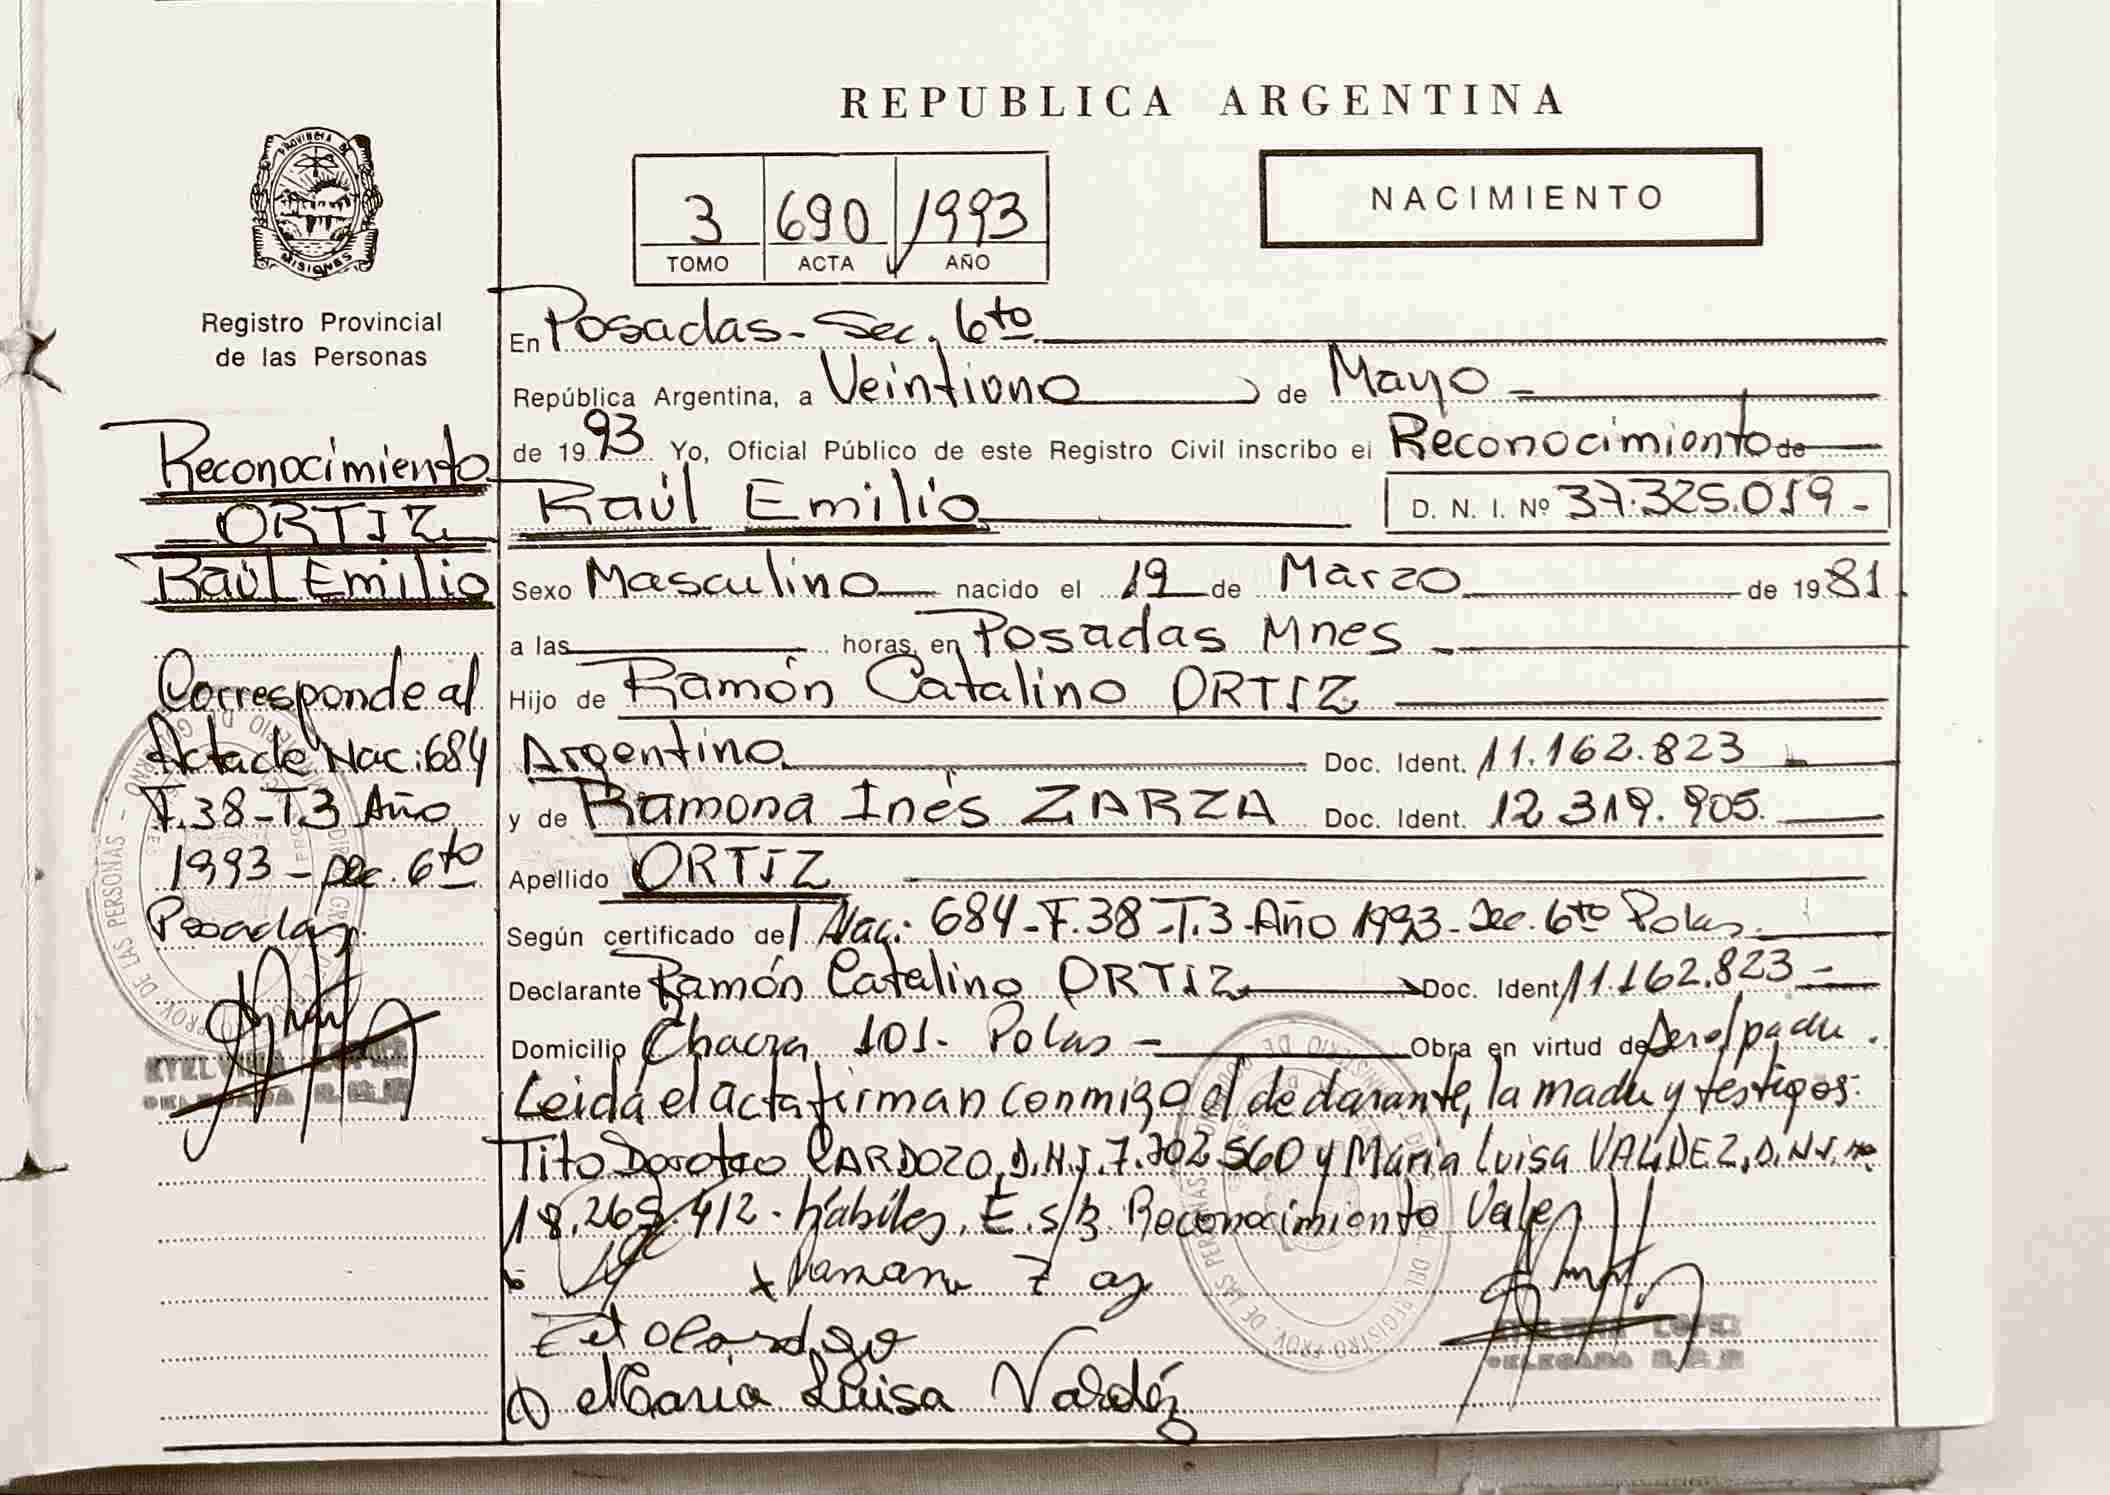 REPUBLICA ARGENTINA
PROVINCIA DE
MISIONES
Registro Provincial
de las Personas
3 690 1993
TOMO ACTA AÑO
NACIMIENTO
Reconocimiento
ORTIZ
Raúl Emilio
Corresponde al
Acta de Nac: 684
F.38-T.3 Año
1993 - Sec. 6to
Posadas.
ETELVINA LOPEZ
DELEGADA
En Posadas - Sec. 6to
República Argentina, a Veintiuno de Mayo -
de 1993 Yo, Oficial Público de este Registro Civil inscribo el Reconocimiento de
Raúl Emilio D. N. I. Nº 37.325.019 -
Sexo Masculino nacido el 19 de Marzo de 1981
a las horas, en Posadas Mnes -
Hijo de Ramón Catalino ORTIZ
Argentino Doc. Ident. 11.162.823
y de Ramona Inés ZARZA Doc. Ident. 12.319.905.
Apellido ORTIZ
Según certificado de Nac: 684-F.38-T.3-Año 1993-Sec. 6to Pdas.
Declarante Ramón Catalino ORTIZ Doc. Ident 11.162.823 -
Domicilio Chacra 101- Pdas - Obra en virtud de Ser el padre.
Leída el acta firman conmigo el declarante, la madre y testigos:
Tito Doroteo CARDOZO, D.N.I. 7.702.560 y María Luisa VALDEZ, D.N.I. nº
18.269.412. hábiles. E. s/R. Reconocimiento Vale
María Luisa Valdéz
ETELVINA LOPEZ
DELEGADA